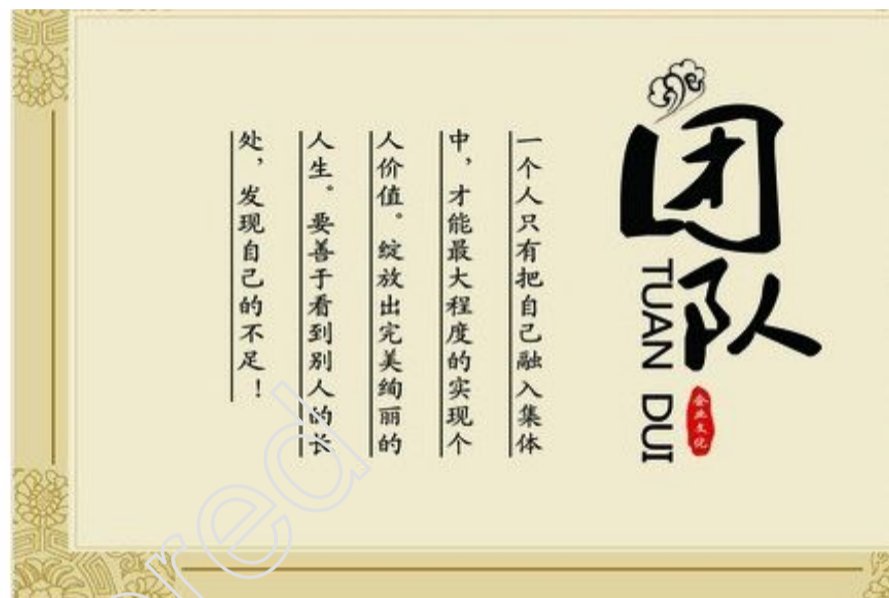 团队
TUAN DUI
企业文化
一个人只有把自己融入集体
中，才能最大程度的实现个
人价值。绽放出完美绚丽的
人生。要善于看到别人的长
处，发现自己的不足！
red